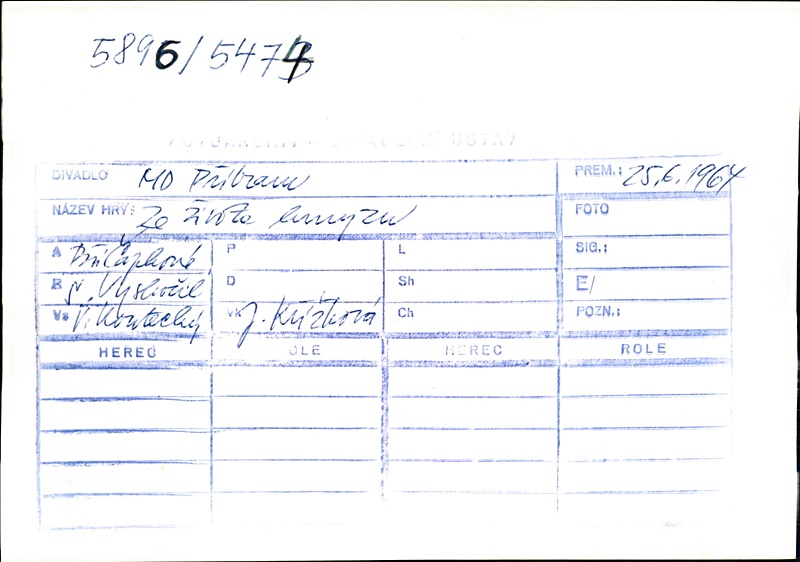 5896/5474
FOTOARCHIV - DIVADELNÍ ÚSTAV
DIVADLO MD Příbram PREM.: 25.6.1964
NÁZEV HRY: Ze života hmyzu FOTO
A Bří Čapkové P L SIG.:
R V. Vyskočil D Sh E/
Vs V. Koutecký vk J. Křížková Ch POZN.:
HEREC OLE HEREC ROLE